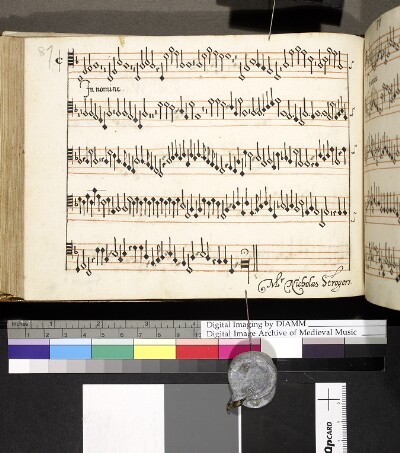 81
In nomine
Mr Nicholas Strogers
inches 1 2 3
Digital Imaging by DIAMM
Digital Image Archive of Medieval Music
CARD